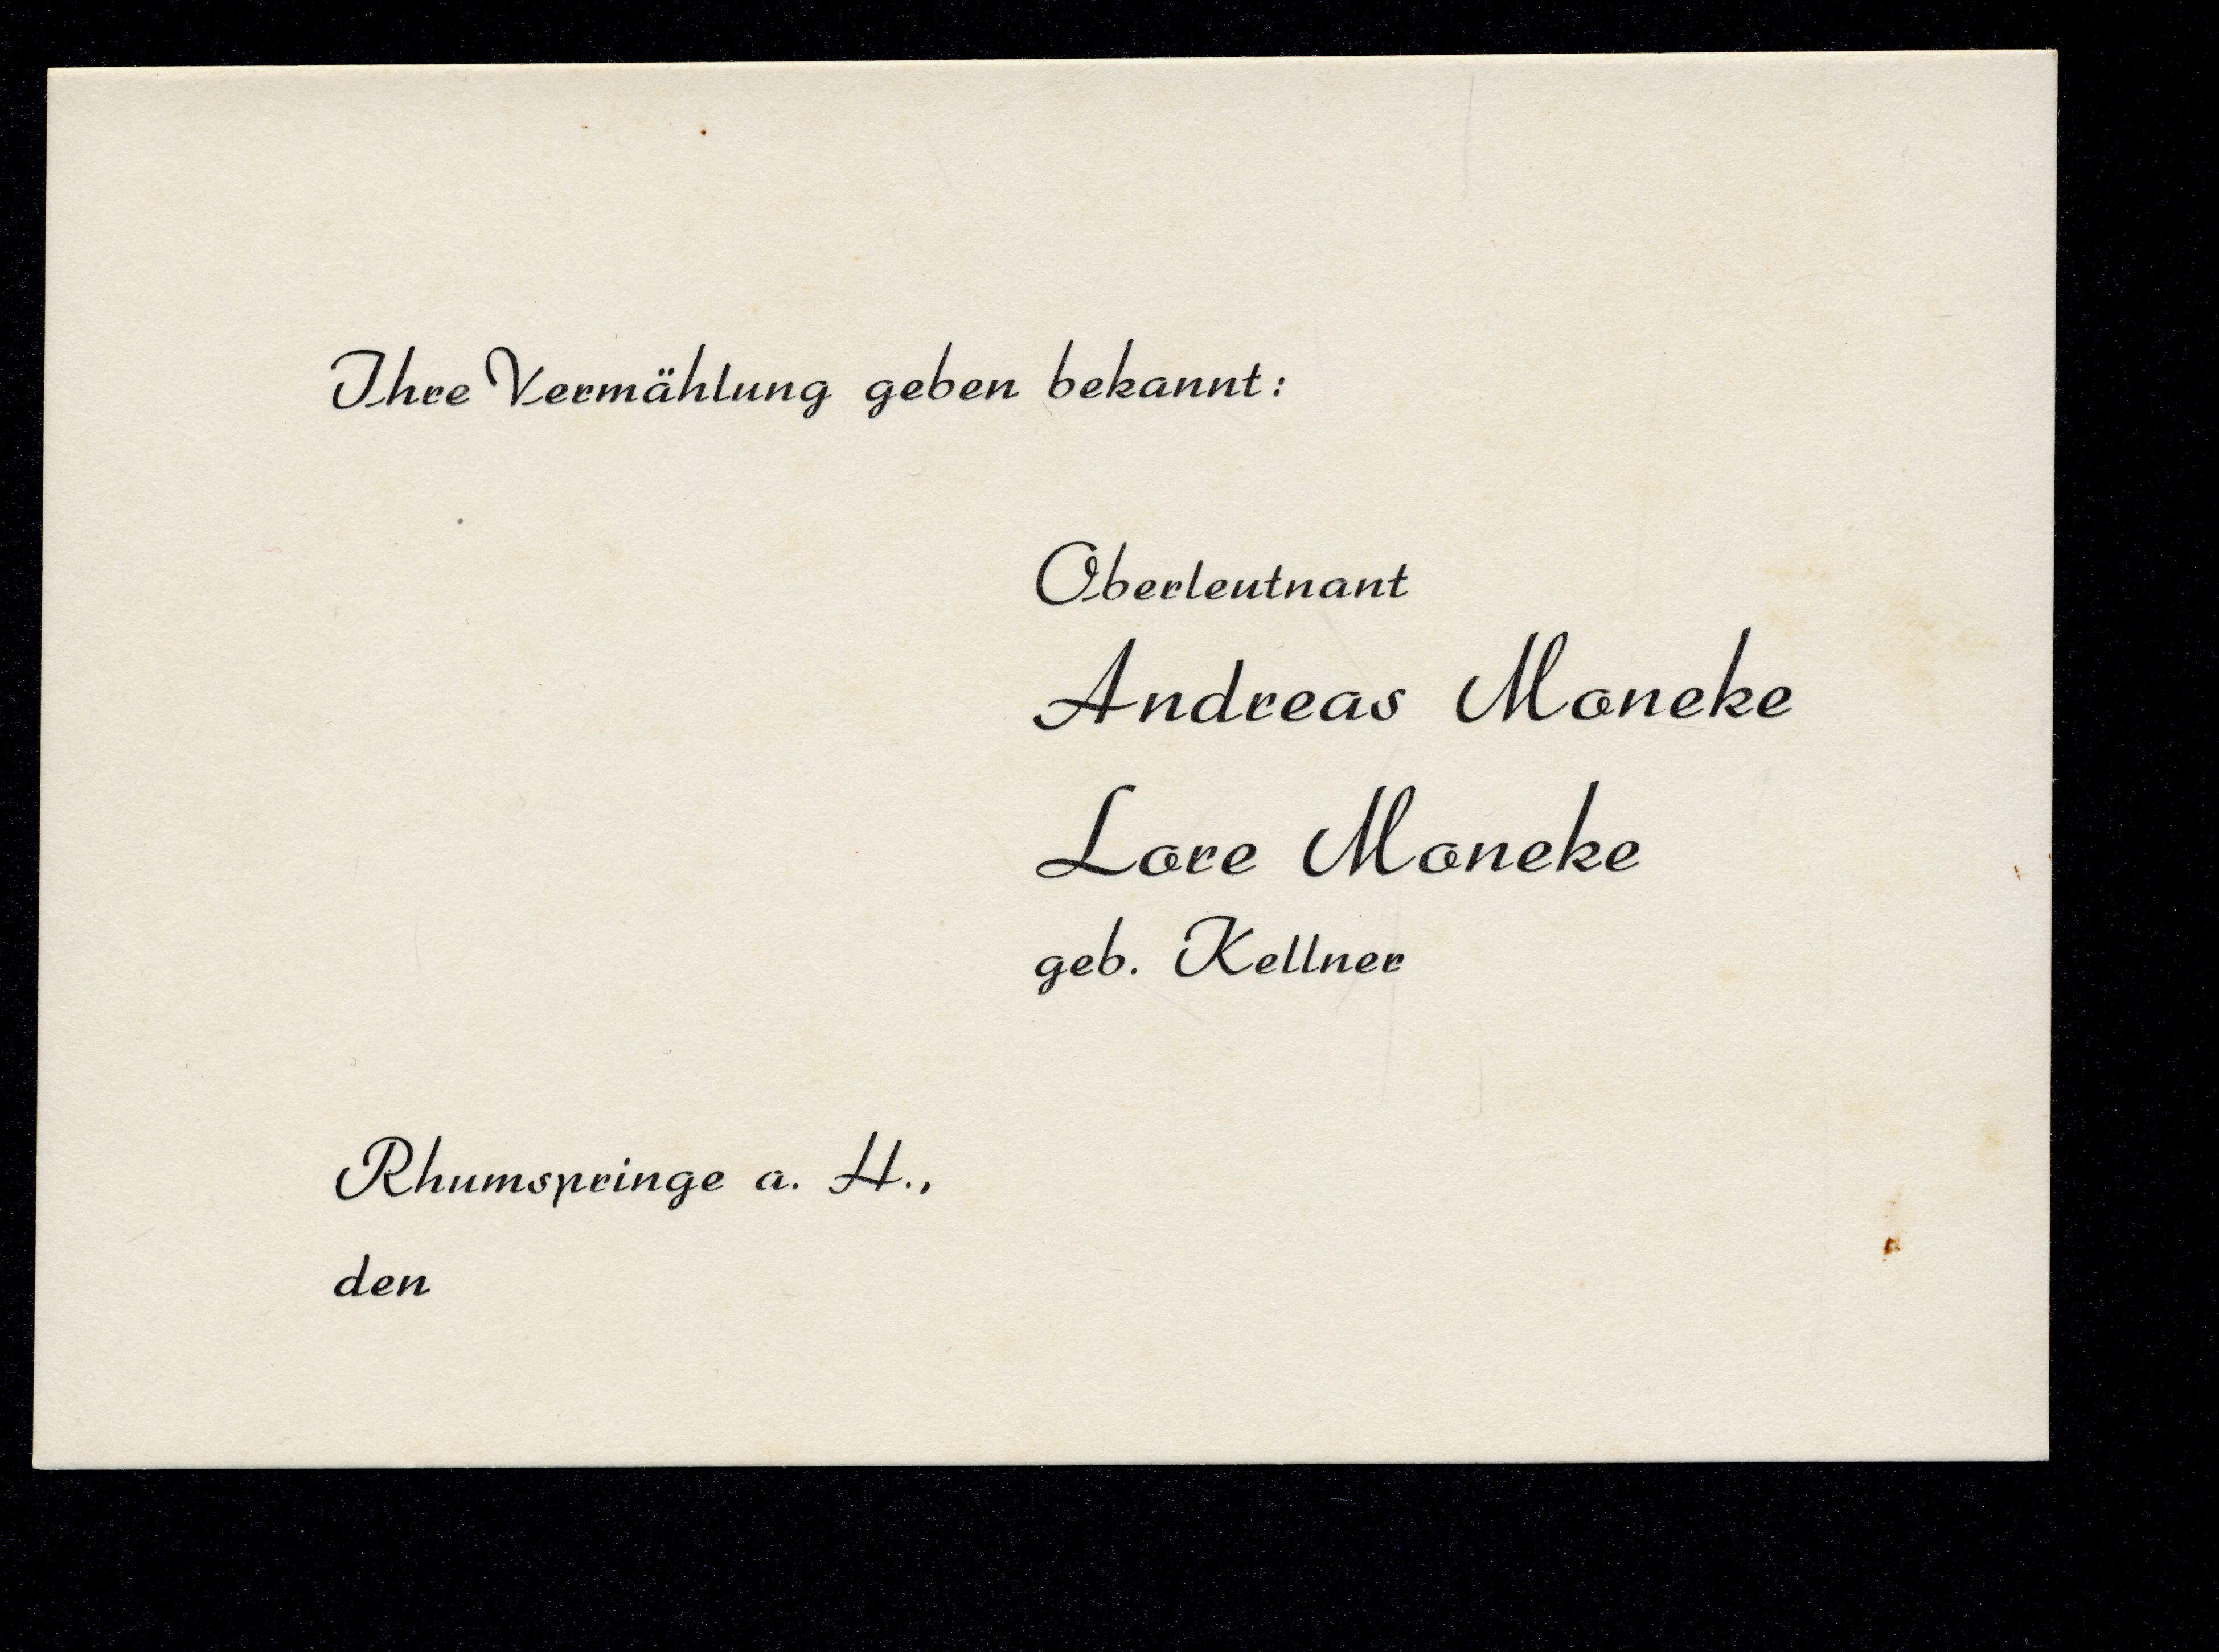 Ihre Vermählung geben bekannt:
Oberleutnant
Andreas Moneke
Lore Moneke
geb. Kellner
Rhumspringe a. H.,
den